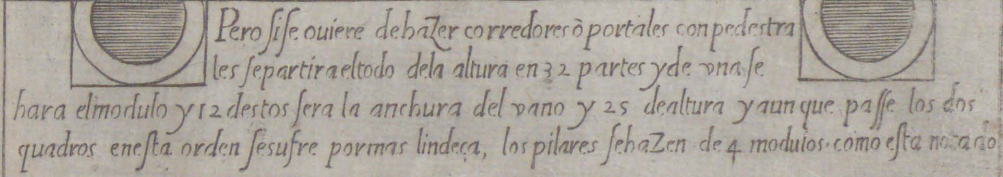 Pero si se ouiere de haZer corredores ò portales con pedestra
les se partira el todo de la altura en 32 partes y de vna se
hara el modulo y 12 destos sera la anchura del vano y 25 de altura y aun que passe los dos
quadros en esta orden se sufre por mas lindeça, los pilares se haZen de 4 modulos. como esta notado